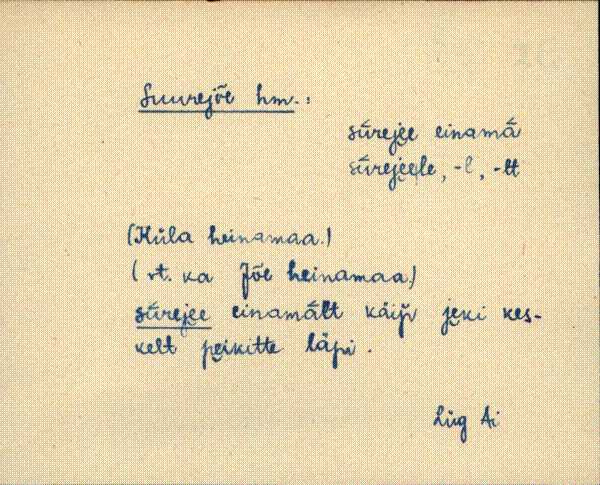 Suurejõe hm.:
sūrejẹe einamā
sūrejẹele, -l, -lt
(Küla heinamaa.)
(vt. ka Jõe heinamaa)
sūrejẹe einamālt käiḙ jẹki kes-
kelt pẹikitte läpi.
Lüg Ai